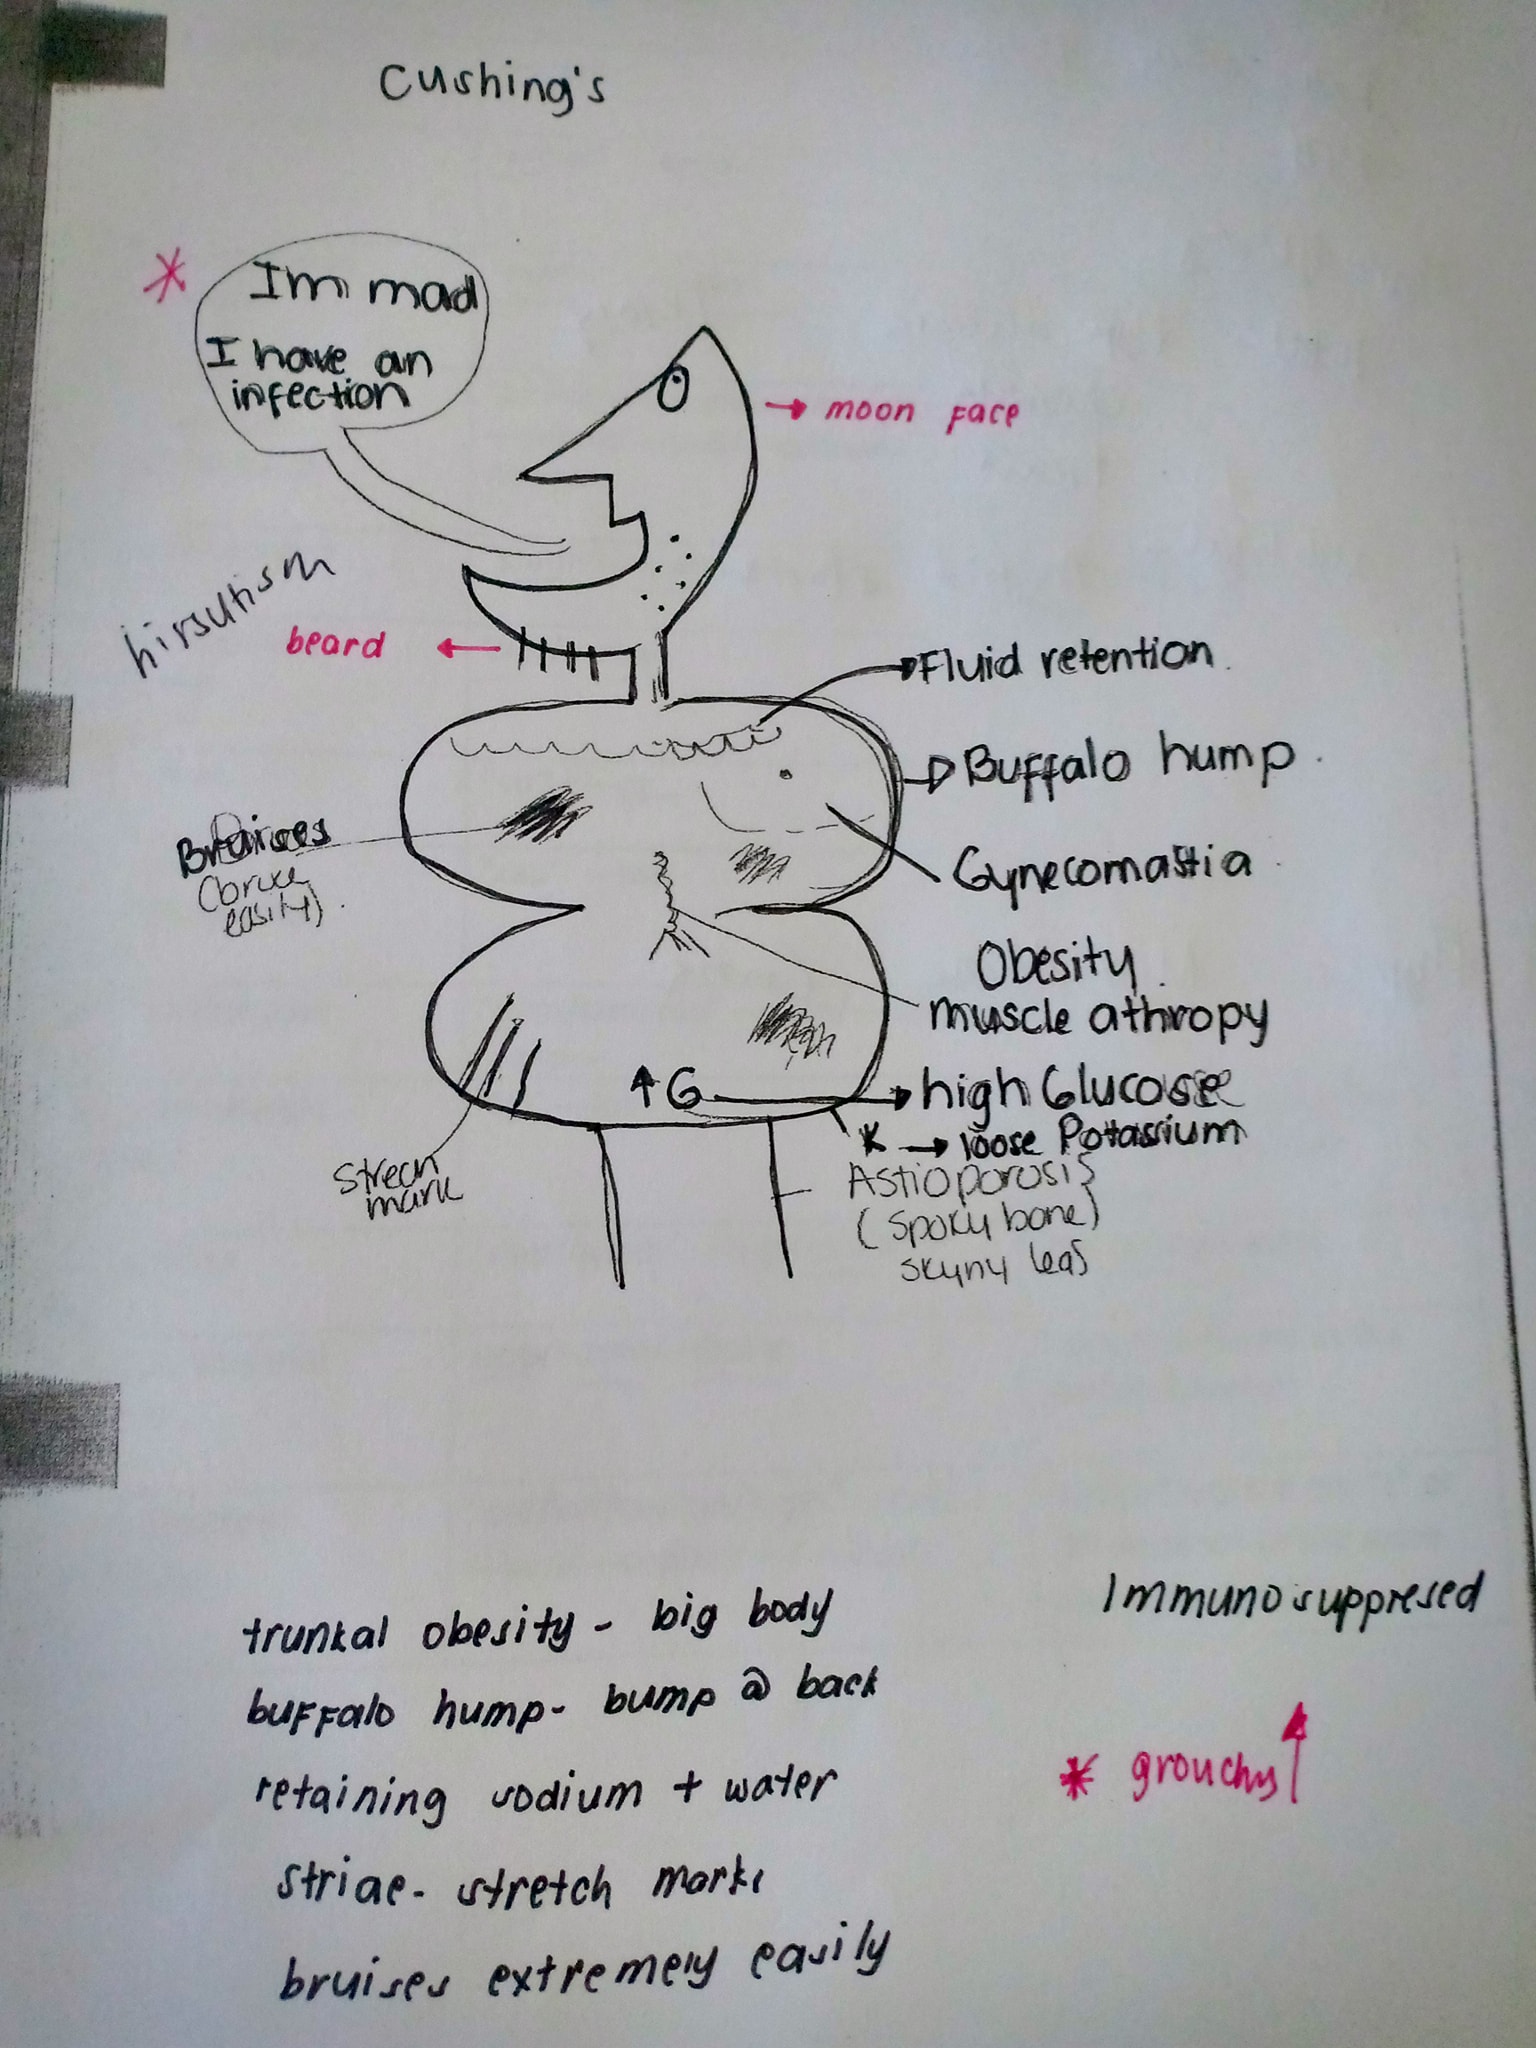 Cushing's
Im mad
I have an
infection
moon face
hirsutism
beard
Fluid retention
Buffalo hump
Bruises
(bruice
easity)
Gynecomastia
Obesity
muscle athropy
↑G → high Glucose
K → loose Potassium
Strech
mark
Astioporosis
(Spoky bone)
skyny leas
trunkal obesity - big body
buffalo hump - bump @ back
retaining sodium + water
striae - stretch marks
bruises extremely easily
Immunosuppresed
* grouchy ↑